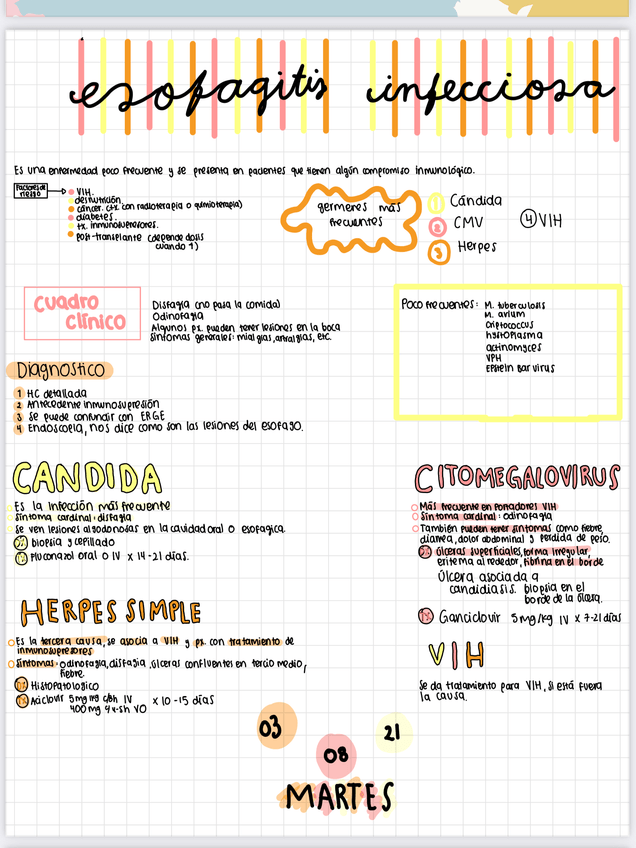 esofagitis infecciosa
Es una enfermedad poco frecuente y se presenta en pacientes que tienen algún compromiso inmunológico.
Factores de riesgo
VIH.
desnutrición.
cáncer. (tx. con radioterapia o quimioterapia)
diabetes.
tx. inmunosupresores.
post-transplante (depende dosis
cuando T)
germenes más
frecuentes
1 Cándida
2 CMV
3 Herpes
4 VIH
Cuadro
clínico
Disfagia (no pasa la comida)
Odinofagia
Algunos px. pueden tener lesiones en la boca
síntomas generales: mialgias, artralgias, etc.
Poco frecuentes: M. tuberculosis
M. avium
criptococcus
hystoplasma
actinomyces
VPH
Epstein bar virus
Diagnostico
1 HC detallada
2 Antecedente inmunosupresión
3 se puede confundir con ERGE
4 Endoscopia, nos dice como son las lesiones del esofago.
CANDIDA
Es la infección más frecuente
síntoma cardinal: disfagia
se ven lesiones algodonosas en la cavidad oral o esofagica.
Dx biopsia y cepillado
Tx Fluconazol oral o IV x 14-21 dias.
CITOMEGALOVIRUS
Más frecuente en portadores VIH
síntoma cardinal: odinofagia
También pueden tener síntomas como fiebre,
diarrea, dolor abdominal y perdida de peso.
Dx úlceras superficiales, forma irregular,
eritema alrededor, fibrina en el borde
Úlcera asociada a
candidiasis. biopsia en el
borde de la úlcera.
Tx Ganciclovir 5mg/kg IV x 7-21 días
HERPES SIMPLE
Es la tercera causa, se asocia a VIH y px. con tratamiento de
inmunosupresores
síntomas: odinofagia, disfagia, úlceras confluentes en tercio medio,
fiebre.
Dx Histopatologico
Tx Aciclovir 5mg mg c/8h IV x 10-15 días
400mg 4v. sh VO
VIH
Se da tratamiento para VIH, si está fuera
la causa.
03
08
21
MARTES